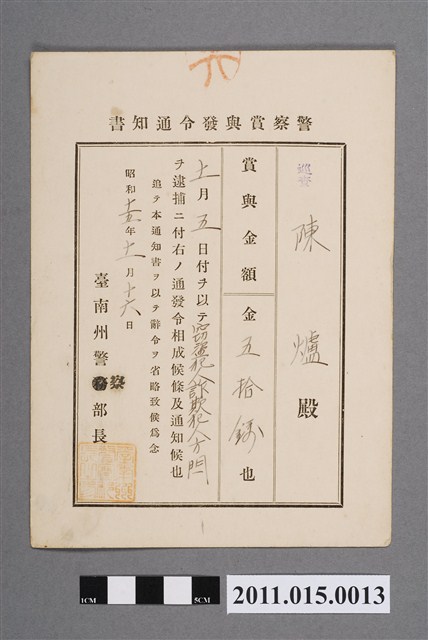 警察賞與發令通知書
巡查
陳爐殿
賞與金額
金五拾錢也
十一月五日付ヲ以テ窃盜犯人詐欺犯人方門
ヲ逮捕ニ付右ノ通發令相成候條及通知候也
追テ本通知書ヲ以テ辭令ヲ省略致候為念
昭和十五年十一月十六日
臺南州警察部長
1CM
5CM
2011.015.0013